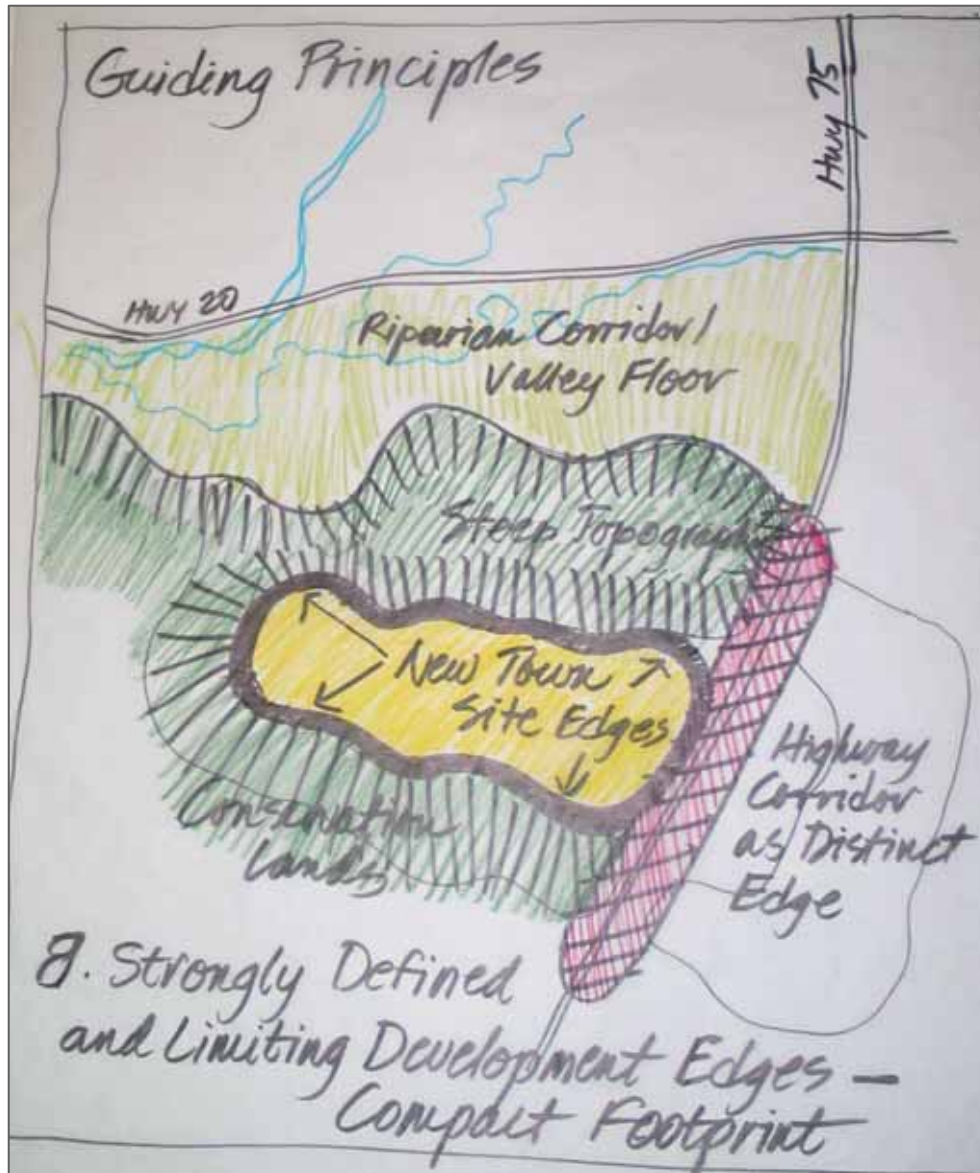 Guiding Principles
Hwy 75
Hwy 20
Riparian Corridor/
Valley Floor
Steep Topography
New Town
Site Edges
Highway
Corridor
as Distinct
Edge
Conservation
Lands
8. Strongly Defined
and Limiting Development Edges –
Compact Footprint